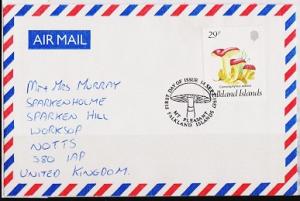 AIR MAIL
29p
Falkland Islands
FIRST DAY OF ISSUE 14 SEP 1987
MT PLEASANT
FALKLAND ISLANDS
Mr + Mrs MURRAY
SPARKENHOLME
SPARKEN HILL
WORKSOP
NOTTS
S80 1AP
UNITED KINGDOM.